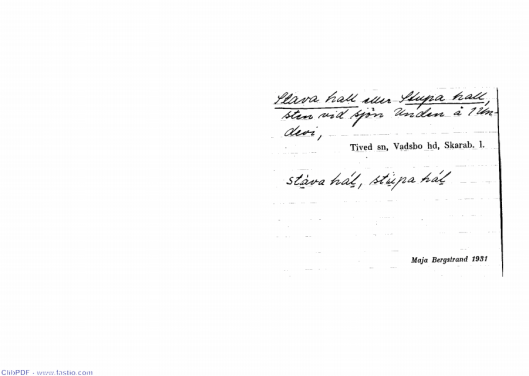 Stava hall eller Stupa hall,
sten vid sjön Unden å
devi,
Tived sn, Vadsbo hd, Skarab. l.
stava háḷ, stupa háḷ
Maja Bergstrand 1931
ClibPDF - www.fastio.com